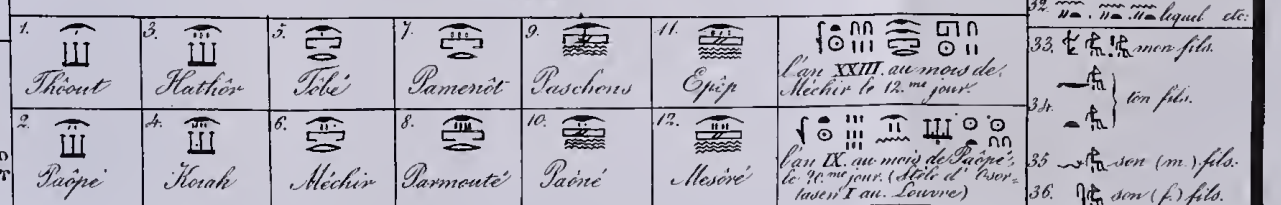 1.
Thôout
3.
Hathôr
5.
Tôbé
7.
Pamenôt
9.
Paschons
11.
Epip
l'an XXIII. au mois de
Méchir le 12.me jour.
2.
Paôpé
4.
Koiah
6.
Méchir
8.
Parmouté
10.
Paôné
12.
Mesôré
l'an IX. au mois de Paôpé,
le 20.me jour. (Stèle d'Osor-
tasen I au Louvre)
32. lequel etc:
33. mon fils.
34. ton fils.
35 son (m.) fils.
36. son (f.) fils.